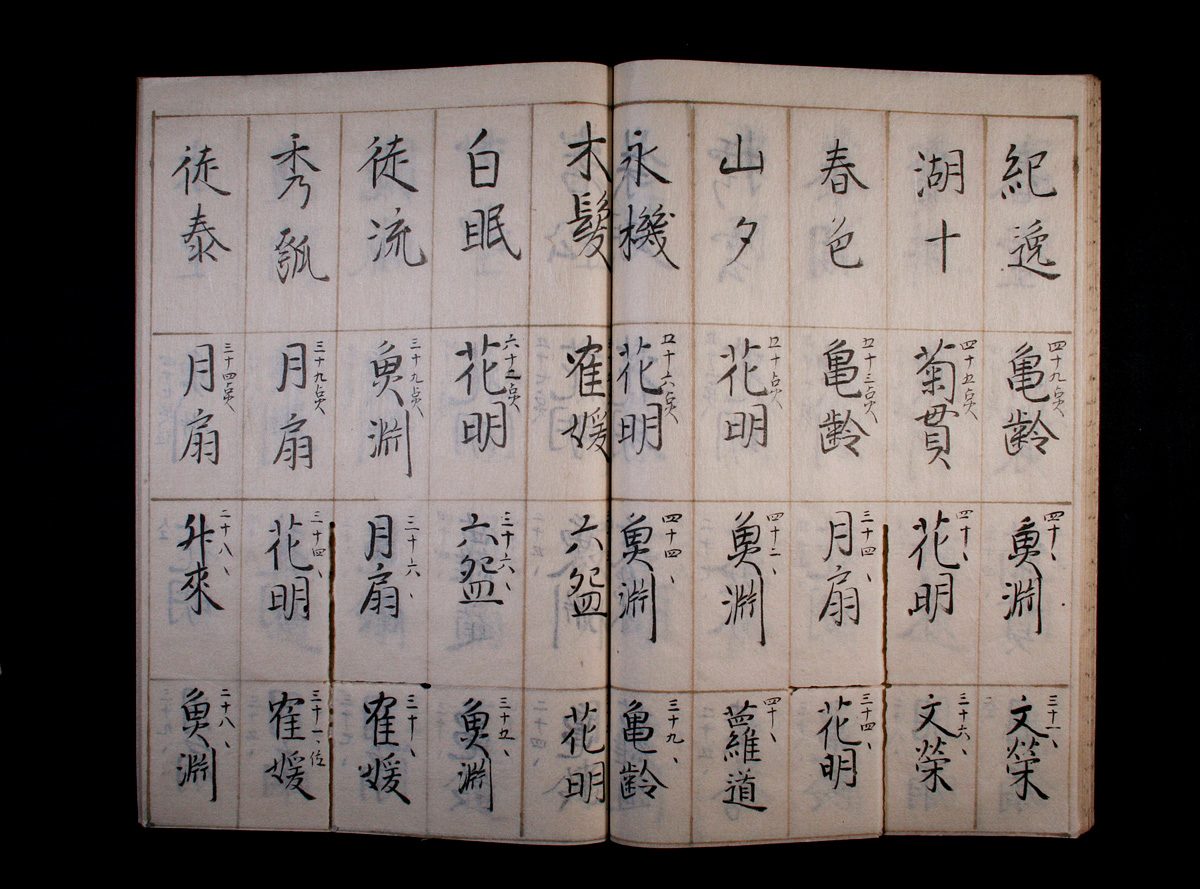 紀逸
亀齢 四十九点
魚淵 四十、
文榮 三十一、
湖十
菊貫 四十五点
花明 四十、
文榮 二十六、
春色
亀齢 五十三点
月扇 三十四、
花明 三十四、
山夕
花明 五十点
魚淵 四十二、
蘿道 四十、
永機
花明 五十六点
魚淵 四十四、
亀齢 三十九、
木髪
寉媛
六盌
花明
白眠
花明 六十三点
六盌 三十六、
魚淵 三十五、
徒流
魚淵 三十九点
月扇 三十六、
寉媛 三十、
秀瓢
月扇 三十九点
花明 三十四、
寉媛 三十一、位
徒泰
月扇 三十四点
升來 二十八、
魚淵 二十八、